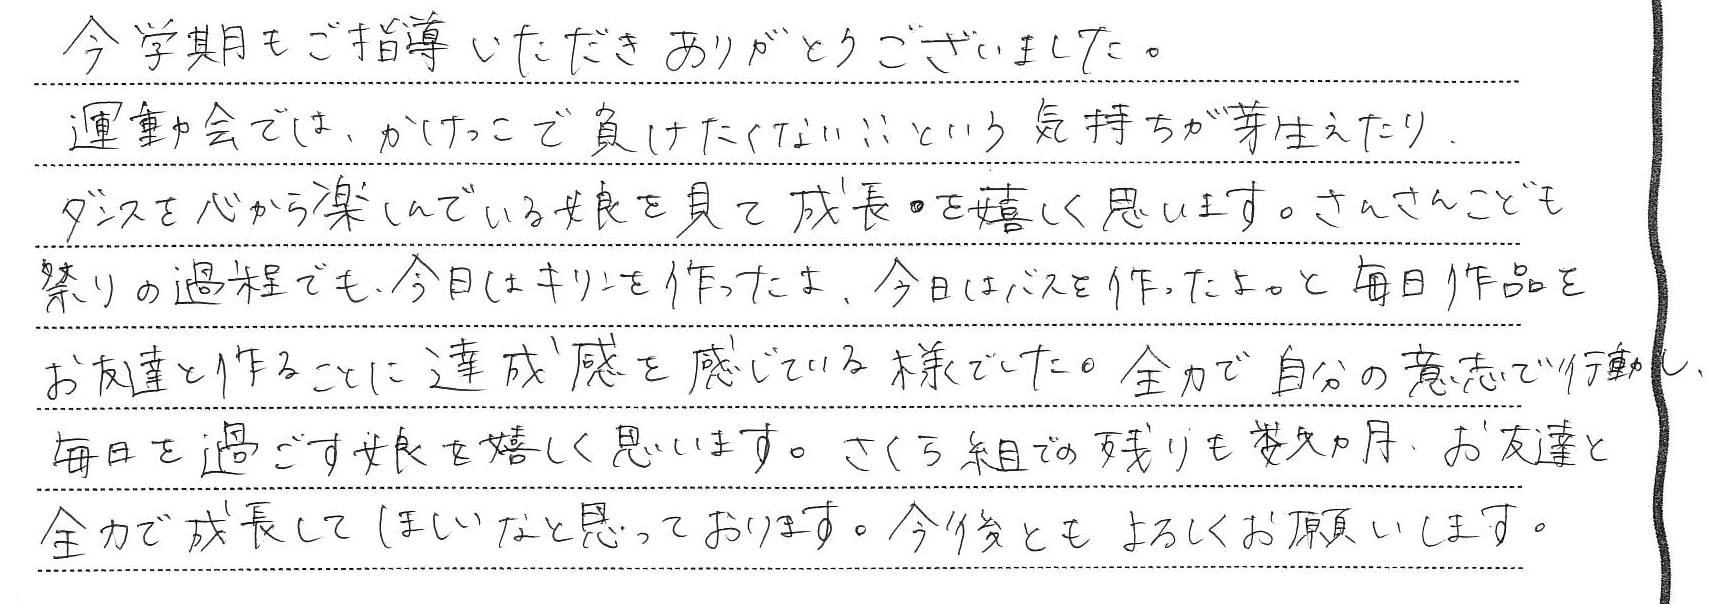 今学期もご指導いただきありがとうございました。
運動会では、かけっこで負けたくない!!という気持ちが芽生えたり、
ダンスを心から楽しんでいる娘を見て成長を嬉しく思います。さんさんこども
祭りの過程でも、今日はキリンを作ったよ、今日はバスを作ったよ。と毎日作品を
お友達と作ることに達成感を感じている様でした。全力で自分の意志で行動し、
毎日を過ごす娘を嬉しく思います。さくら組での残りも数ヵ月、お友達と
全力で成長してほしいなと思っております。今後ともよろしくお願いします。